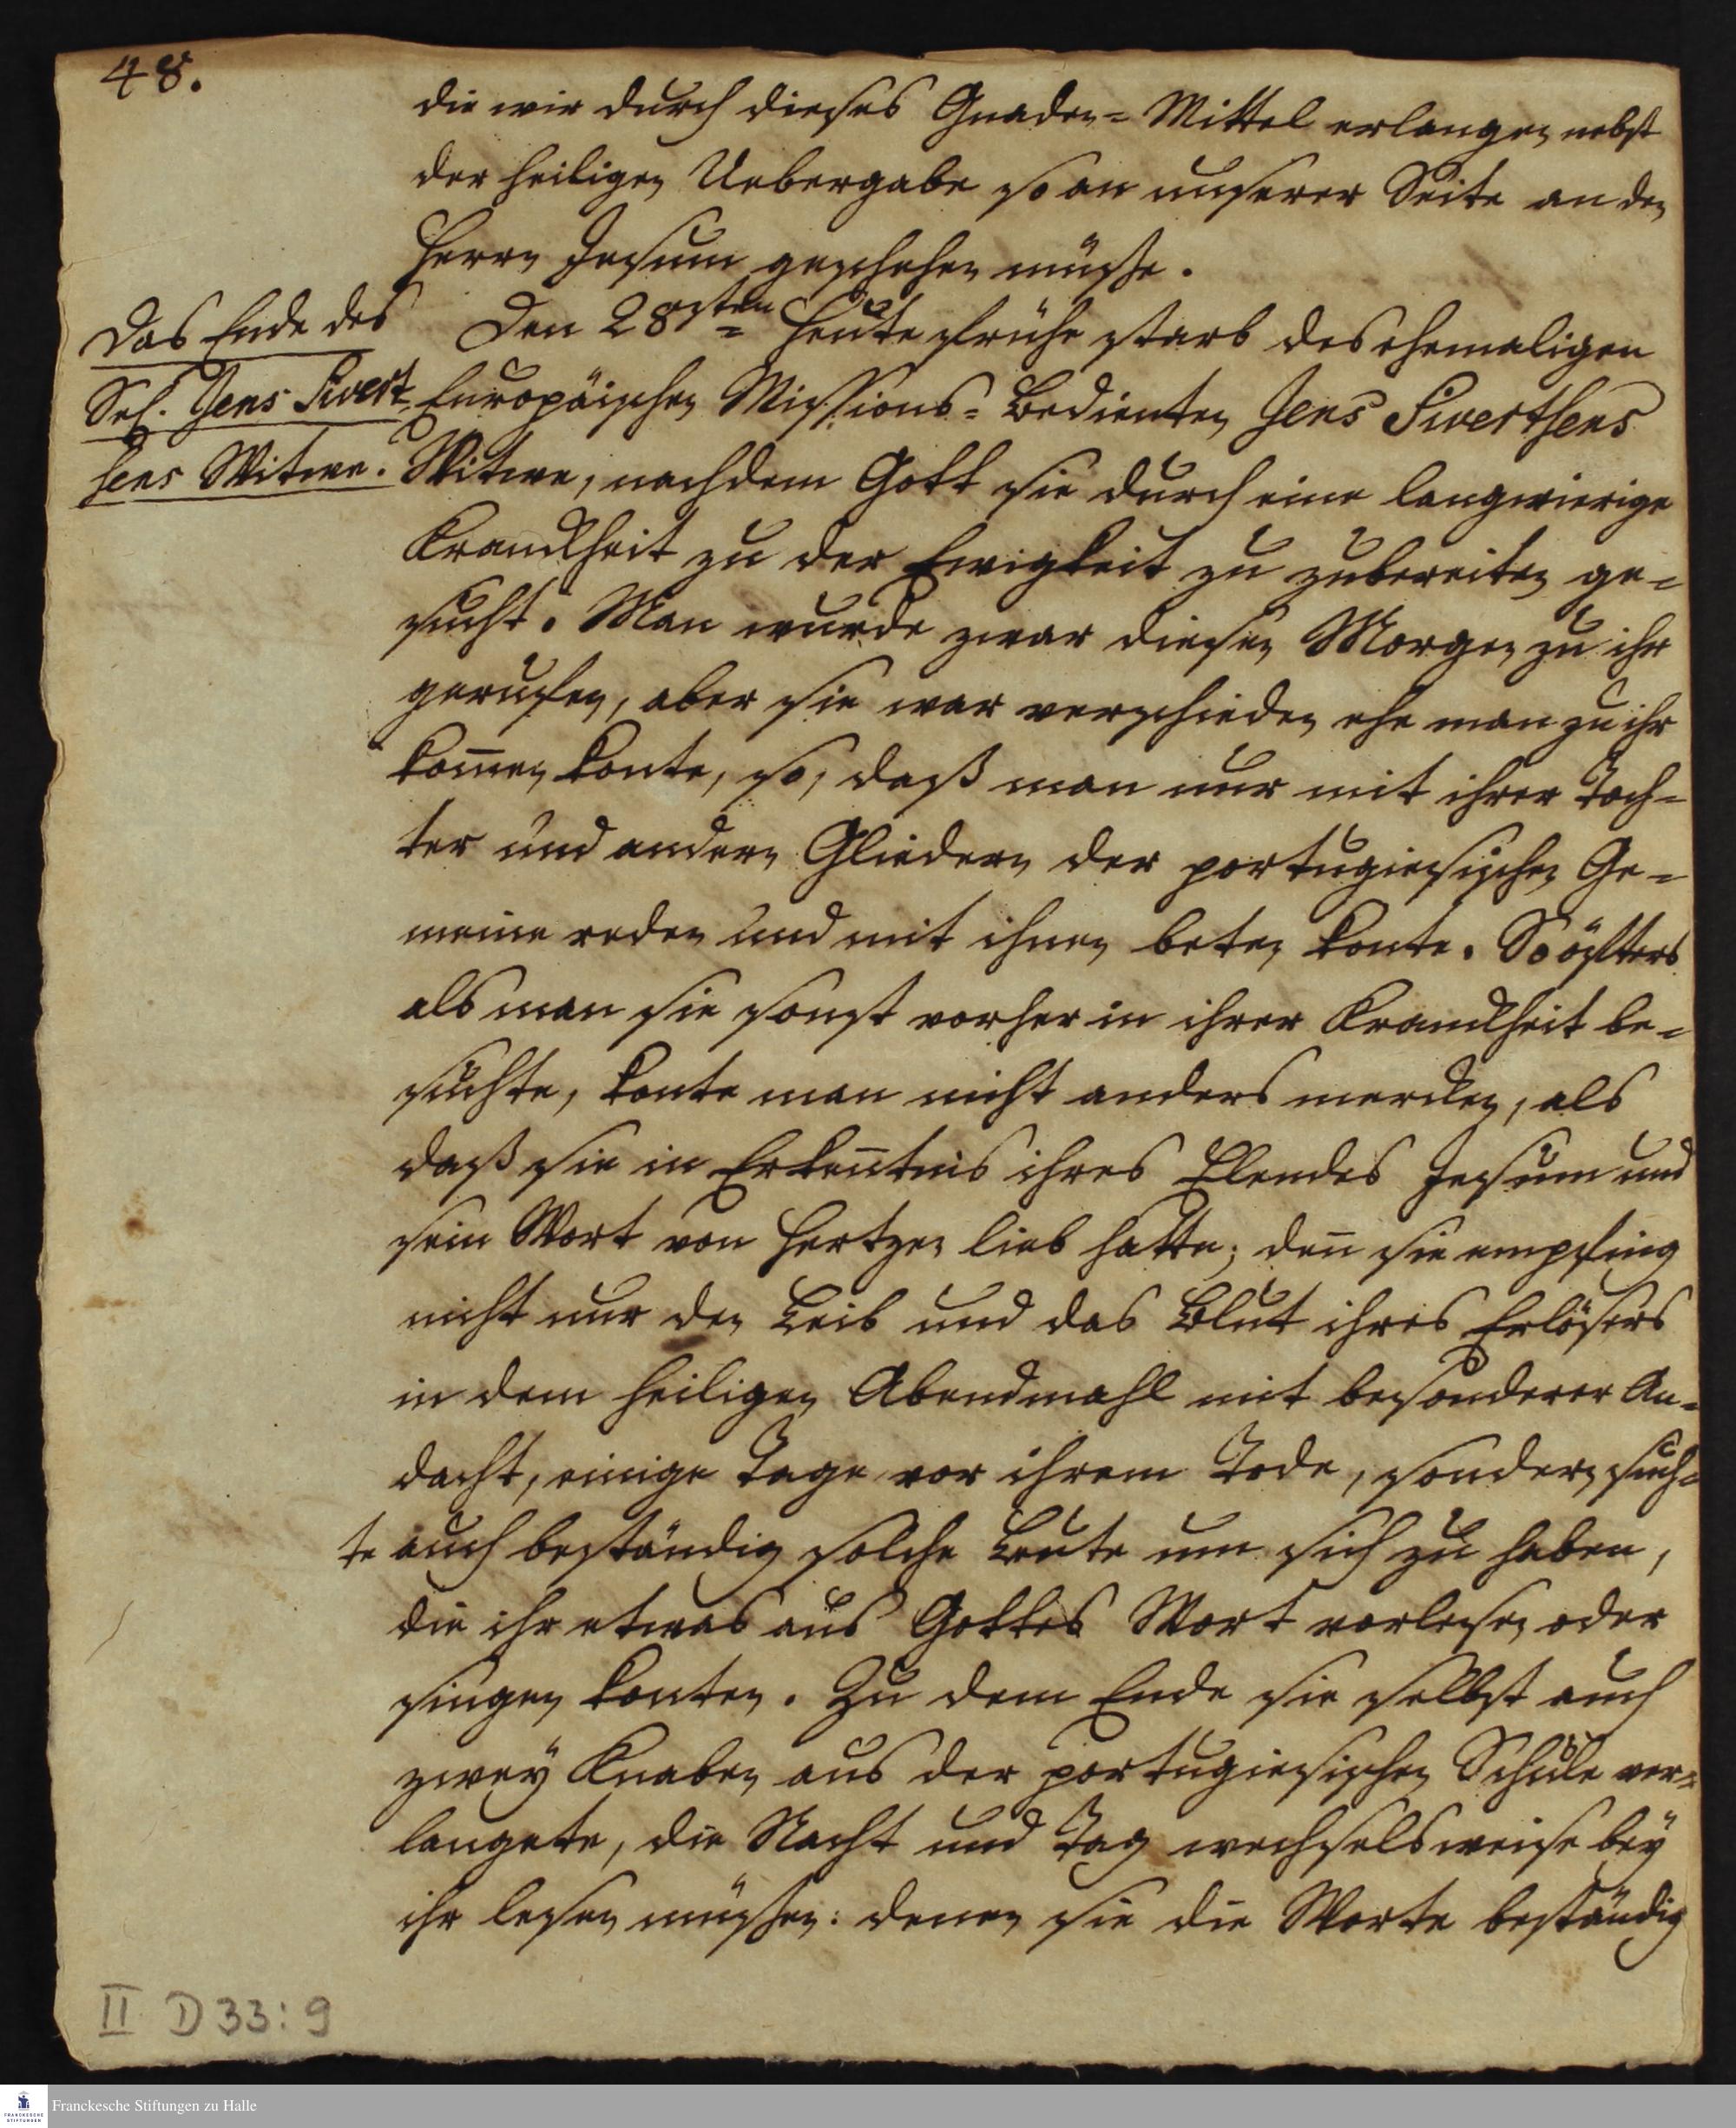 48.
die wir durch dieses Gnaden-Mittel erlangen nebst
der heiligen Uebergabe so an unserer Seite an den
Herrn Jesum geschehen müsse.
Das Ende des
Sel. Jens Sivert
sens Witwe.
Den 28sten Heute frühe starb des ehemaligen
Europäischen Missions-Bedienten Jens Sivertsens
Witwe, nachdem Gott sie durch eine langwierige
Kranckheit zu der Ewigkeit zu zubereiten ge-
sucht. Man wurde zwar diesen Morgen zu ihr
gerufen, aber sie war verschieden ehe man zu ihr
kom̄en konte, so, daß man nur mit ihrer Toch-
ter und andern Gliedern der portugiesischen Ge-
meine reden und mit ihnen beten konte. So öfters
als man sie sonst vorher in ihrer Kranckheit be-
suchte, konte man nicht anders mercken, als
daß sie in Erken̄tnis ihres Elendes Jesum und
sein Wort von Hertzen lieb hatte; den̄ sie empfing
nicht nur den Leib und das Blut ihres Erlösers
in dem heiligen Abendmahl mit besonderer An-
dacht, einige Tage vor ihrem Tode, sondern such-
te auch beständig solche Leute um sich zu haben,
die ihr etwas aus Gottes Wort vorlesen oder
singen konten. Zu dem Ende sie selbst auch
zwey Knaben aus der portugiesischen Schule ver-
langete, die Nacht und Tag wechselsweise bey
ihr lesen müssen: denen sie die Worte beständig
II D 33:9
Franckesche Stiftungen zu Halle
FRANCKESCHE
STIFTUNGEN